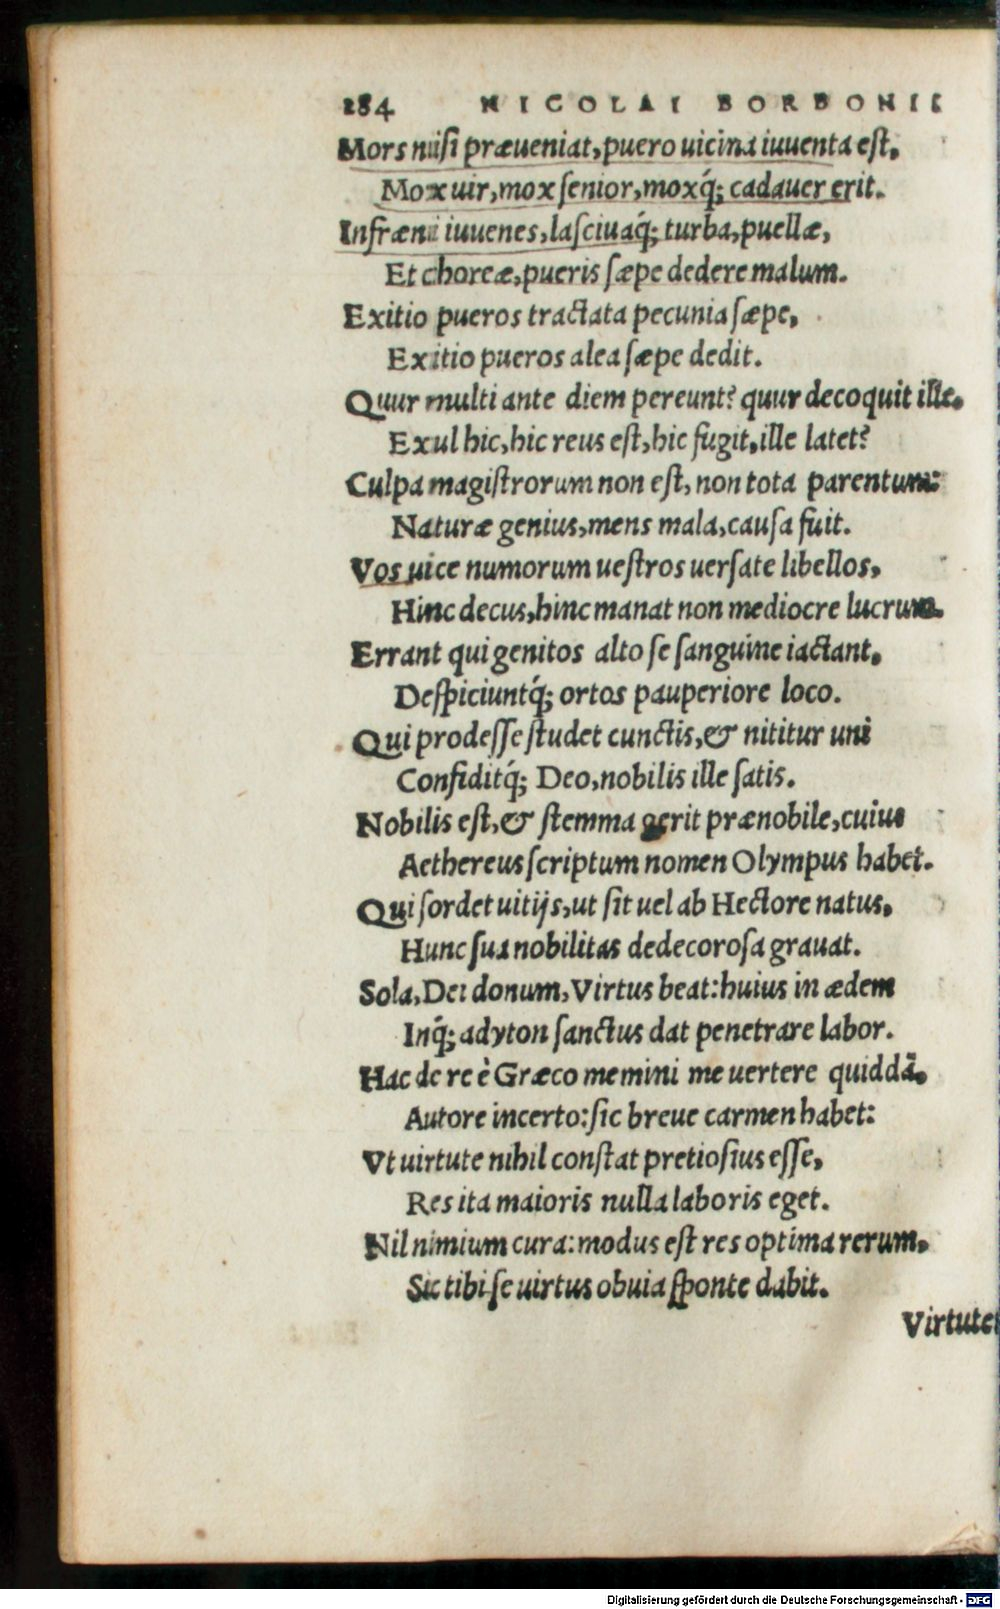 284 NICOLAI BORBONII
Mors nisi præueniat, puero uicina iuuenta est,
Mox uir, mox senior, moxq́; cadauer erit.
Infræni iuuenes, lasciuaq́; turba, puellæ,
Et choreæ, pueris sæpe dedere malum.
Exitio pueros tractata pecunia sæpe,
Exitio pueros alea sæpe dedit.
Quur multi ante diem pereunt? quur decoquit ille.
Exul hic, hic reus est, hic fugit, ille latet?
Culpa magistrorum non est, non tota parentum:
Naturæ genius, mens mala, causa fuit.
Vos uice numorum uestros uersate libellos,
Hinc decus, hinc manat non mediocre lucrum.
Errant qui genitos alto se sanguine iactant,
Despiciuntq́; ortos pauperiore loco.
Qui prodesse studet cunctis, & nititur uni
Confiditq́; Deo, nobilis ille satis.
Nobilis est, & stemma gerit prænobile, cuius
Aethereus scriptum nomen Olympus habet.
Qui sordet uitijs, ut sit uel ab Hectore natus,
Hunc sua nobilitas dedecorosa grauat.
Sola, Dei donum, Virtus beat: huius in ædem
Inq́; adyton sanctus dat penetrare labor.
Hac de re è Græco memini me uertere quiddā,
Autore incerto: sic breue carmen habet:
Vt uirtute nihil constat pretiosius esse,
Res ita maioris nulla laboris eget.
Nil nimium cura: modus est res optima rerum,
Sic tibi se uirtus obuia sponte dabit.
Virtute
Digitalisierung gefördert durch die Deutsche Forschungsgemeinschaft - DFG